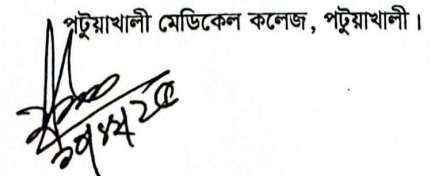 পটুয়াখালী মেডিকেল কলেজ, পটুয়াখালী।